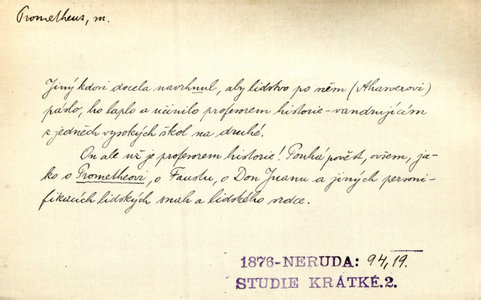 Prometheus, m.
Jiný kdosi docela navrhnul, aby lidstvo po něm (Ahasverovi)
páslo, ho laplo a učinilo profesorem historie - vandrujícím
z jedněch vysokých škol na druhé.
On ale už je profesorem historie! Pouhá pověst, ovšem, ja-
ko o Prometheovi, o Faustu, o Don Juanu a jiných personi-
fikacích lidských snah a lidského srdce.
1876-NERUDA: 94,19.
STUDIE KRÁTKÉ.2.